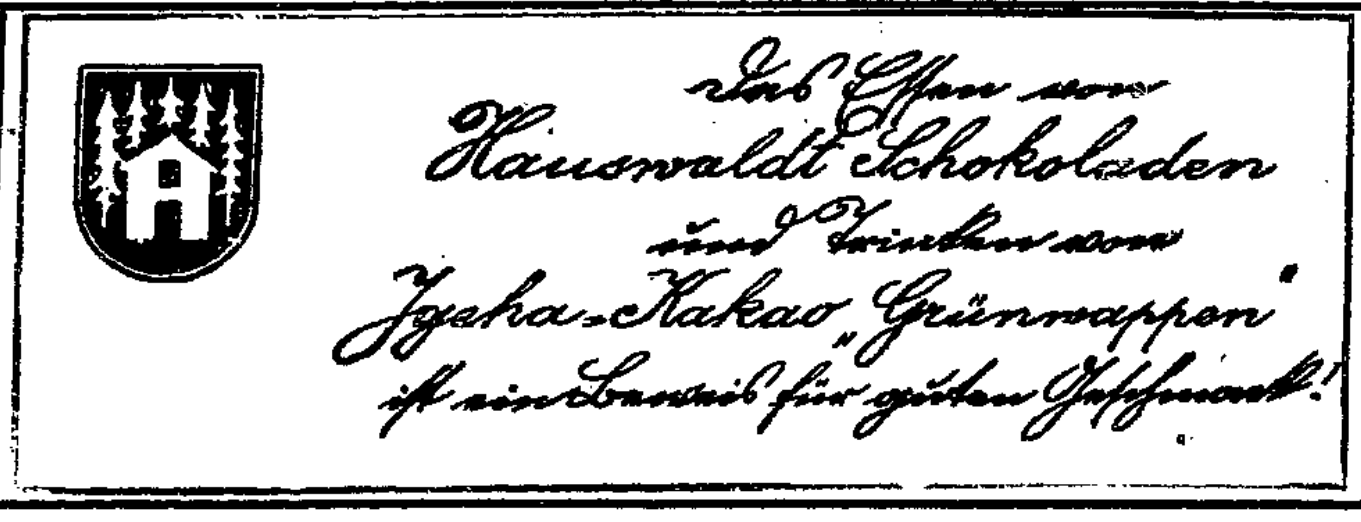 Das Essen von
Hauswaldt Schokoladen
und Trinken von
Jgeha-Kakao „Grünwappen"
ist ein Beweis für guten Geschmack!